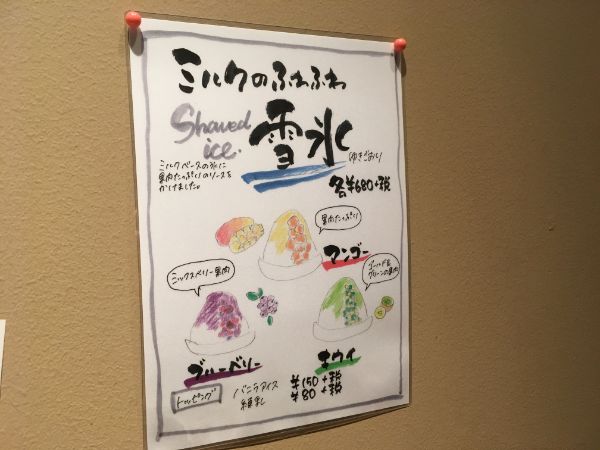 ミルクのふわふわ
Shaved
ice.
雪氷
(ゆきごおり)
ミルクベースの氷に
果肉たっぷりのソースを
かけました。
各¥680+税
果肉たっぷり
マンゴー
ミックスベリー果肉
ゴールド&
グリーンの果肉
ブルーベリー
キウイ
トッピング
バニラアイス ¥150+税
練乳 ¥80+税